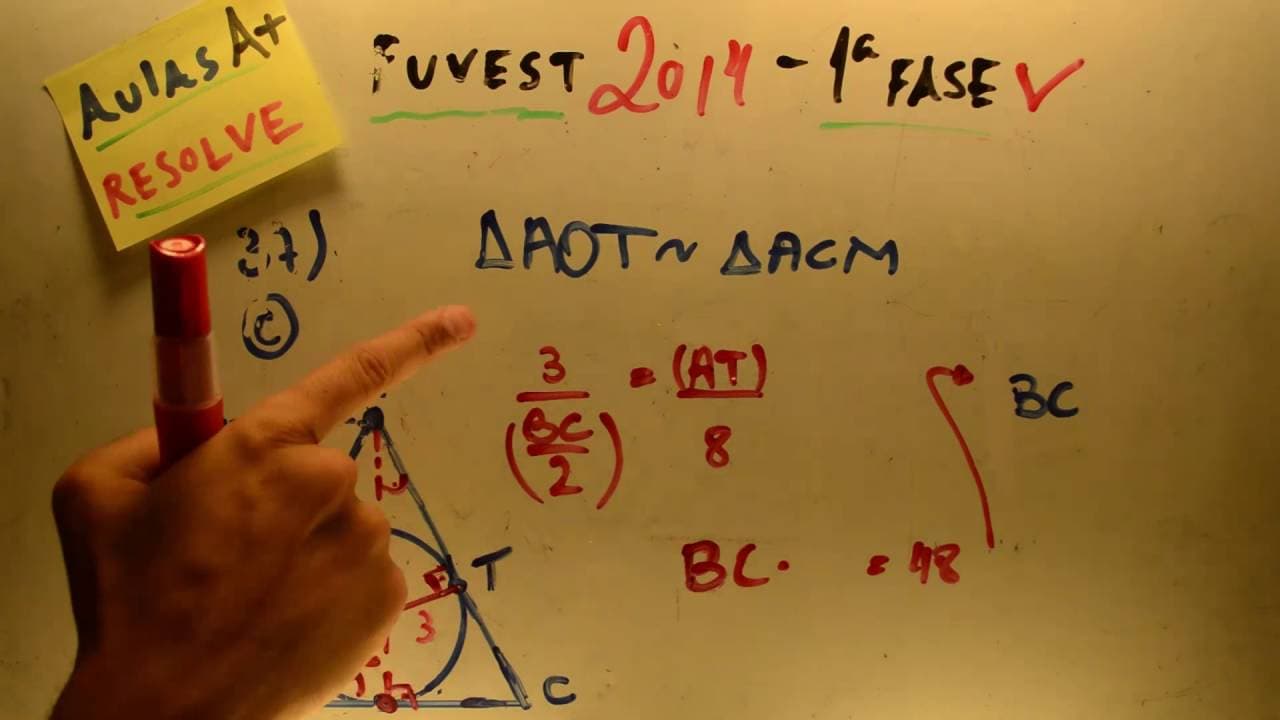 Aulas A+
RESOLVE
FUVEST 2014 - 1ª FASE ✓
37)
C
ΔAOT ~ ΔACM
3/(BC/2) = (AT)/8
BC
BC· = 48
T
3
C